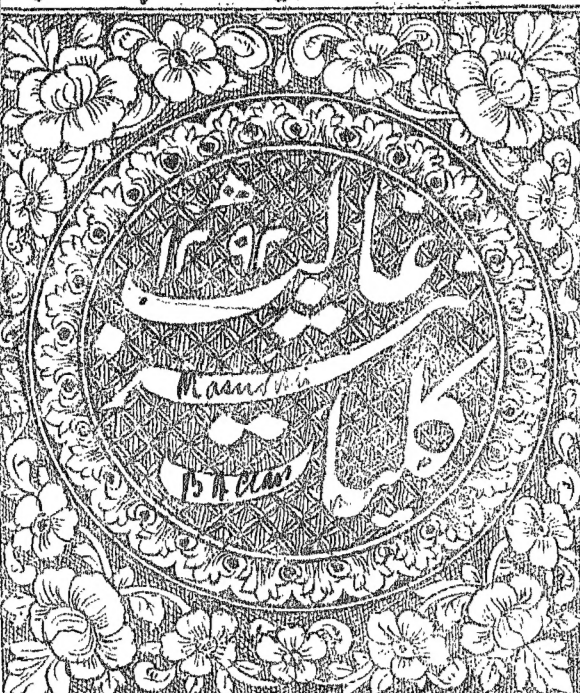 کلیات
غالب
۱۲۹۲
B A Class